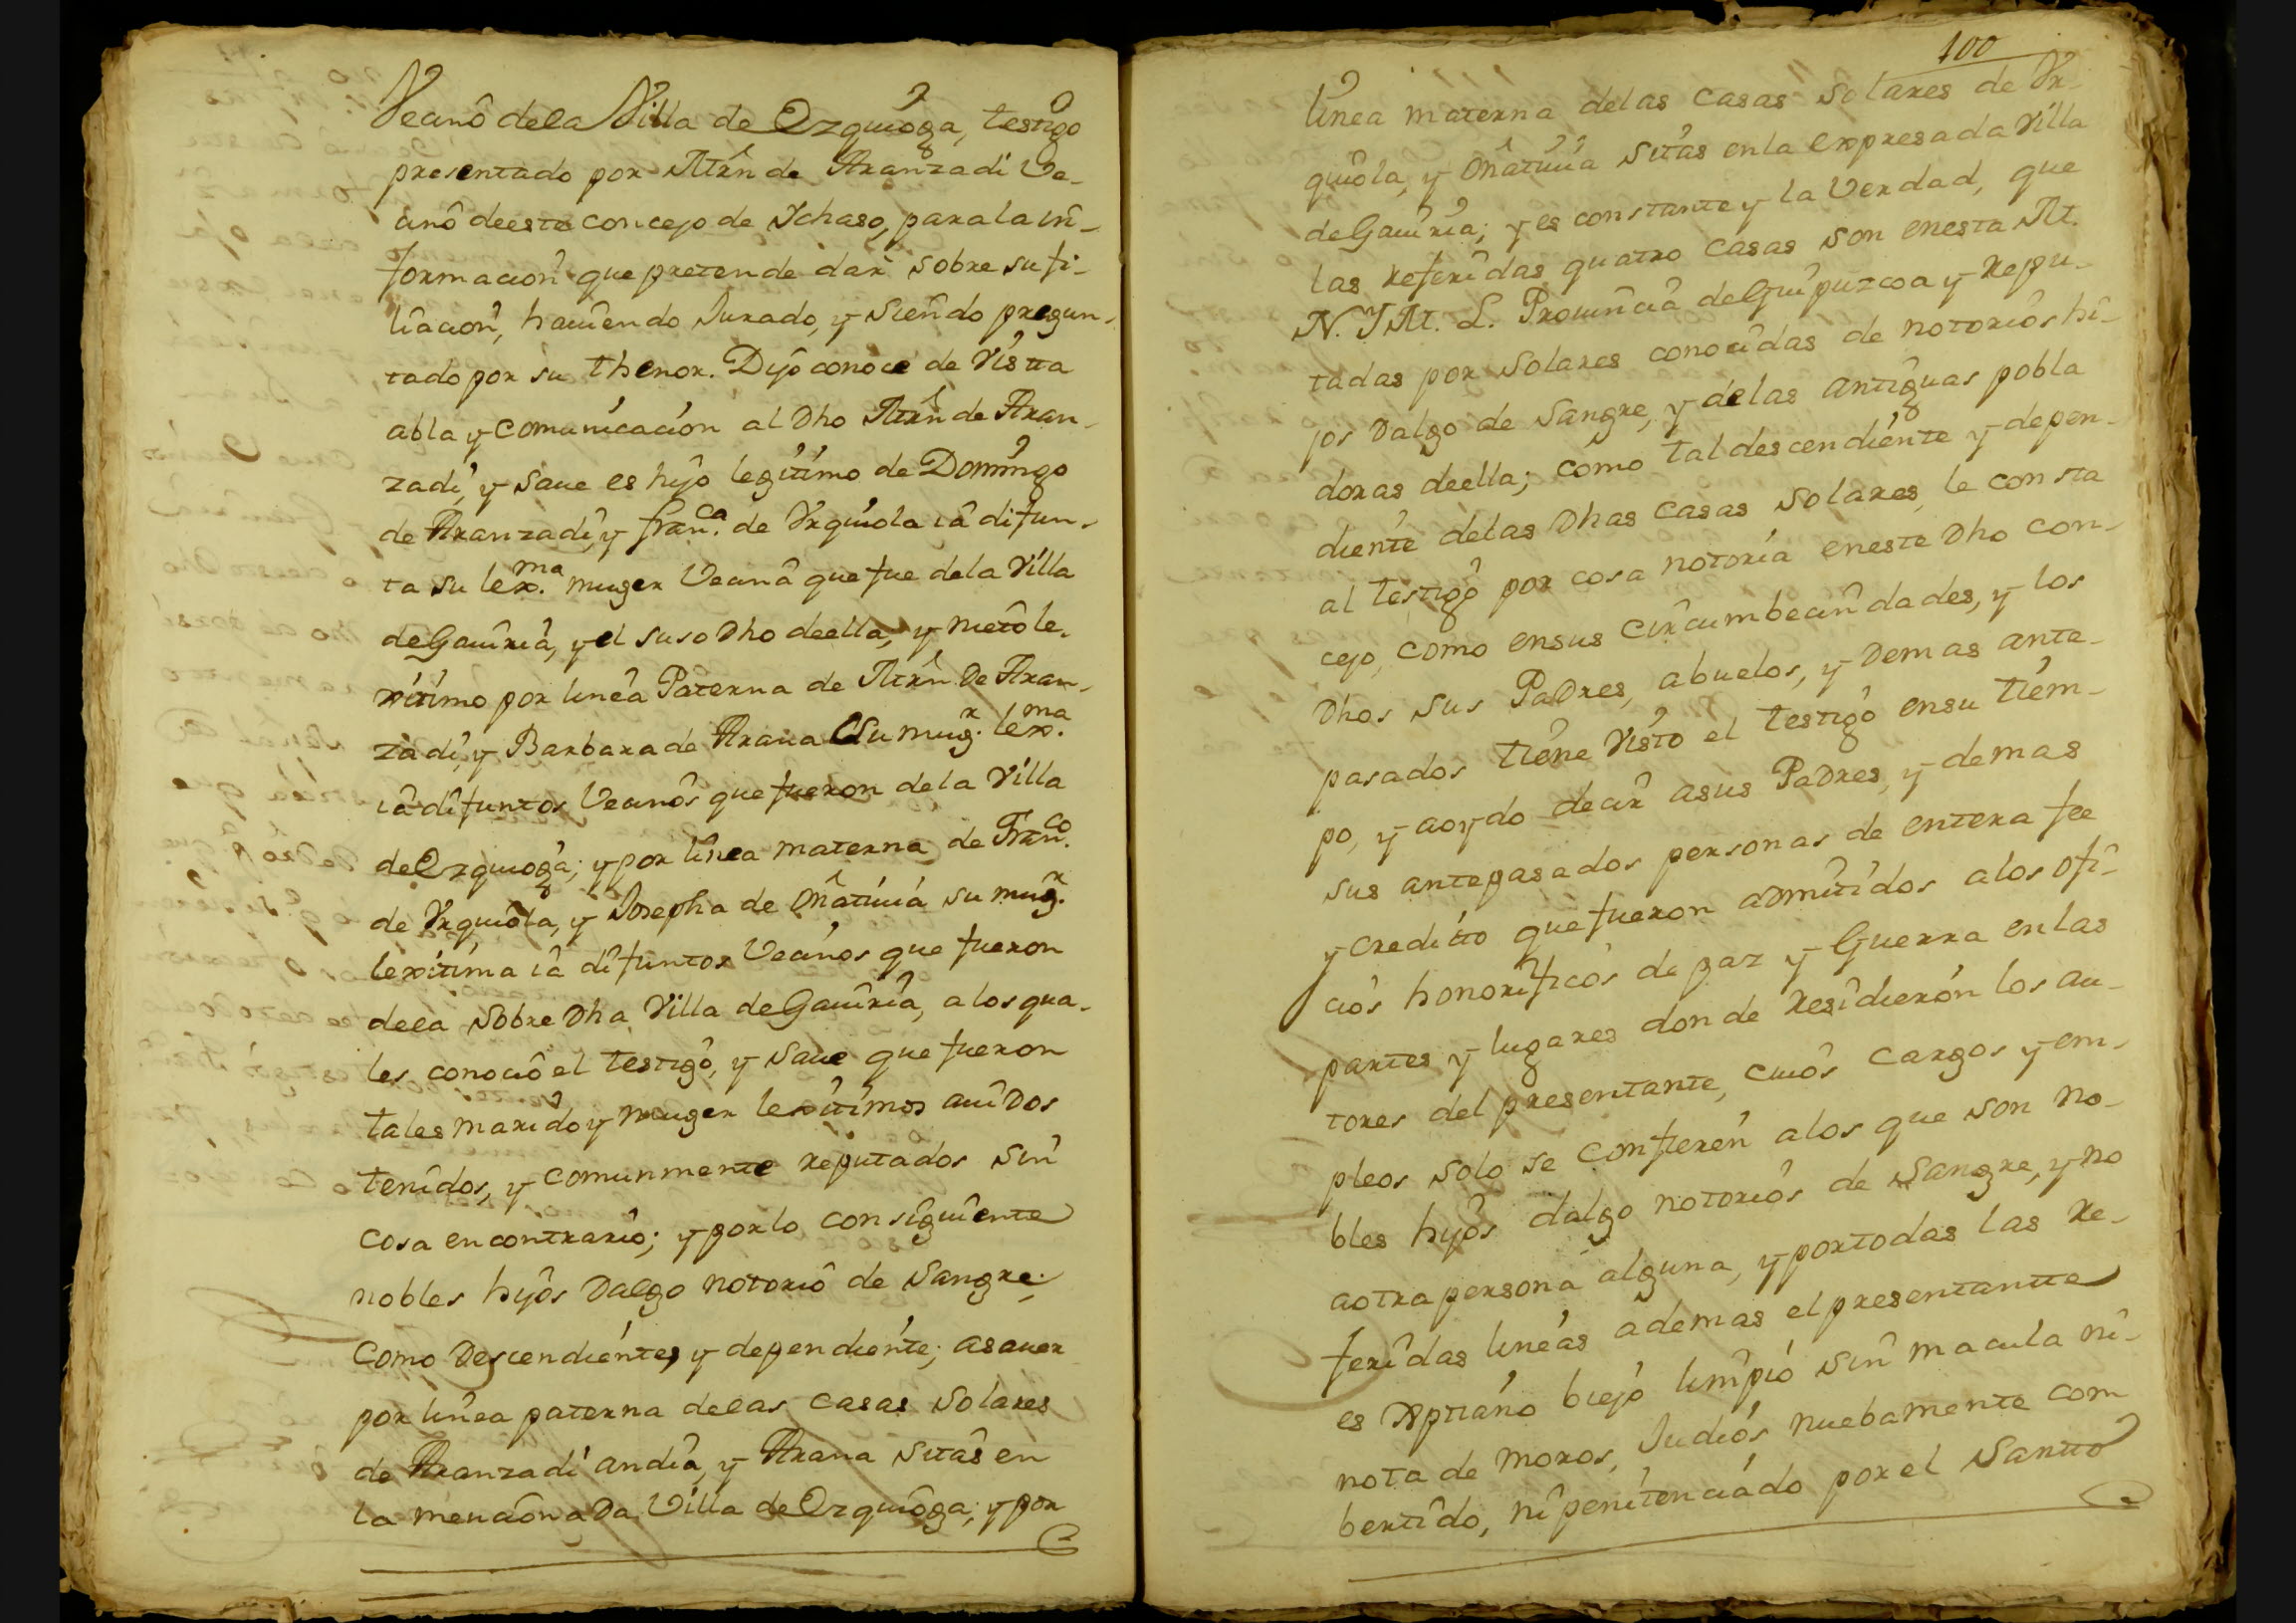 Vecino dela Villa de Ezquioga, testigo
presentado por Mrn de Aranzadi Ve-
cino deeste concejo de Ichaso, para la in-
formacion que pretende dar sobre su fi-
liacion, hauiendo Jurado, y siendo pregun-
tado por su thenor. Dijo conoce de Vistta
abla y comunicacion al Dho Mrn de Aran-
zadi, y saue es hijo legitimo de Domingo
de Aranzadi, y fran.ca de Vrquiola ia difun-
ta su lex.ma muger Vecina que fue dela Villa
de Gauiria, y el suso Dho deella, y nieto le-
xitimo por linea Paterna de Mrn De Aran-
zadi, y Barbara de Arana su mug.r lex.ma
ia difuntos Vecinos que fueron dela Villa
de Ezquioga; y por linea materna de Fran.co
de Vrquiola, y Josepha de Oñatiuia su mug.r
lexitima ia difuntos Vecinos que fueron
dela sobre Dha Villa de Gauiria, a los qua-
les conocio el testigo, y saue que fueron
tales marido y muger lexitimos auidos
tenidos, y comunmente reputados sin
cosa en contrario; y por lo consiguiente
nobles hijos Dalgo notorio de sangre;
como Descendientes y dependiente; asauer
por linea paterna delas casas solares
de Aranzadi andia, y Arana sitas en
la mencionada Villa de Ezquioga; y por
100
linea materna delas casas solares de Vr-
quiola, y Oñatiuia sitas enla expresada Villa
de Gauiria; y es constante y la Verdad, que
las referidas quatro casas son enesta M.
N. Y M. L. Prouincia de Guipuzcoa y repu-
tadas por solares conocidas de notorios hi-
jos Dalgo de sangre, y delas antiguas pobla
doras deella; como tal descendiente y depen-
diente delas Dhas casas solares, le consta
al testigo por cosa notoria eneste Dho con-
cejo, como ensus circumbecindades, y los
Dhos sus Padres, abuelos, y Demas ante-
pasados tiene Visto el testigo ensu tiem-
po, y aoydo decir asus Padres, y demas
sus antepasados personas de entera fee
y creditto que fueron admitidos alos ofi-
cios honorificos de paz y Guerra enlas
partes y lugares donde residieron los au-
tores del presentante, cuios cargos y em-
pleos solo se confieren alos que son no-
bles hijos dalgo notorios de sangre, y no
aotra persona alguna, y portodas las re-
feridas lineas ademas el presentantte
es Xptiano biejo limpio sin macula ni-
nota de moros, Judios nuebamente com
bertido, ni penitenciado por el Santto